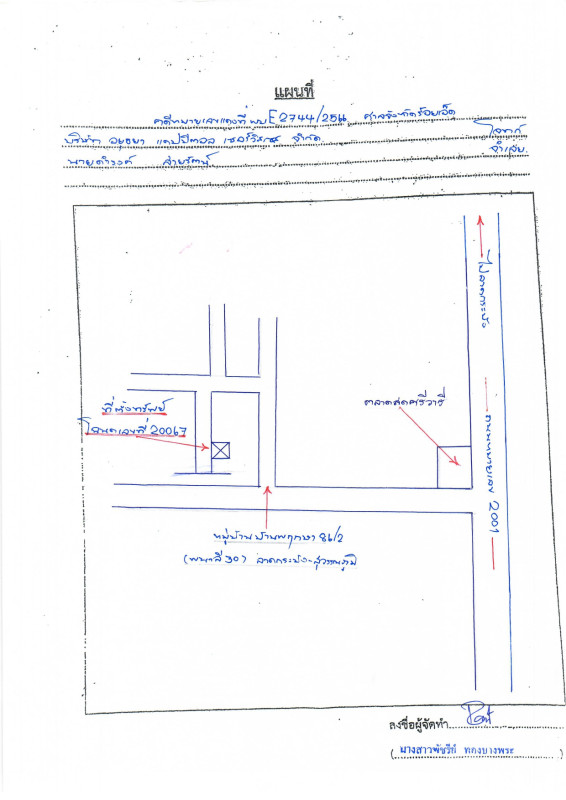 แผนที่
คดีหมายเลขแดงที่ ผบ E2744/256 ศาลจังหวัดร้อยเอ็ด
บริษัท อยุธยา แคปปิตอล เซอร์วิสเซส จำกัด โจทก์
นายดำรงค์ สายรัตน์ จำเลย
ไปลาดกระบัง
ที่ตั้งทรัพย์
โฉนดเลขที่ 20067
ตลาดสดศรีวารี
ถนนหมายเลข 2001
หมู่บ้านบ้านพฤกษา 86/2
(พนาสี 30) ลาดกระบัง-สุวรรณภูมิ
ลงชื่อผู้จัดทำ
(นางสาวพัชรีย์ ทองบางพระ)